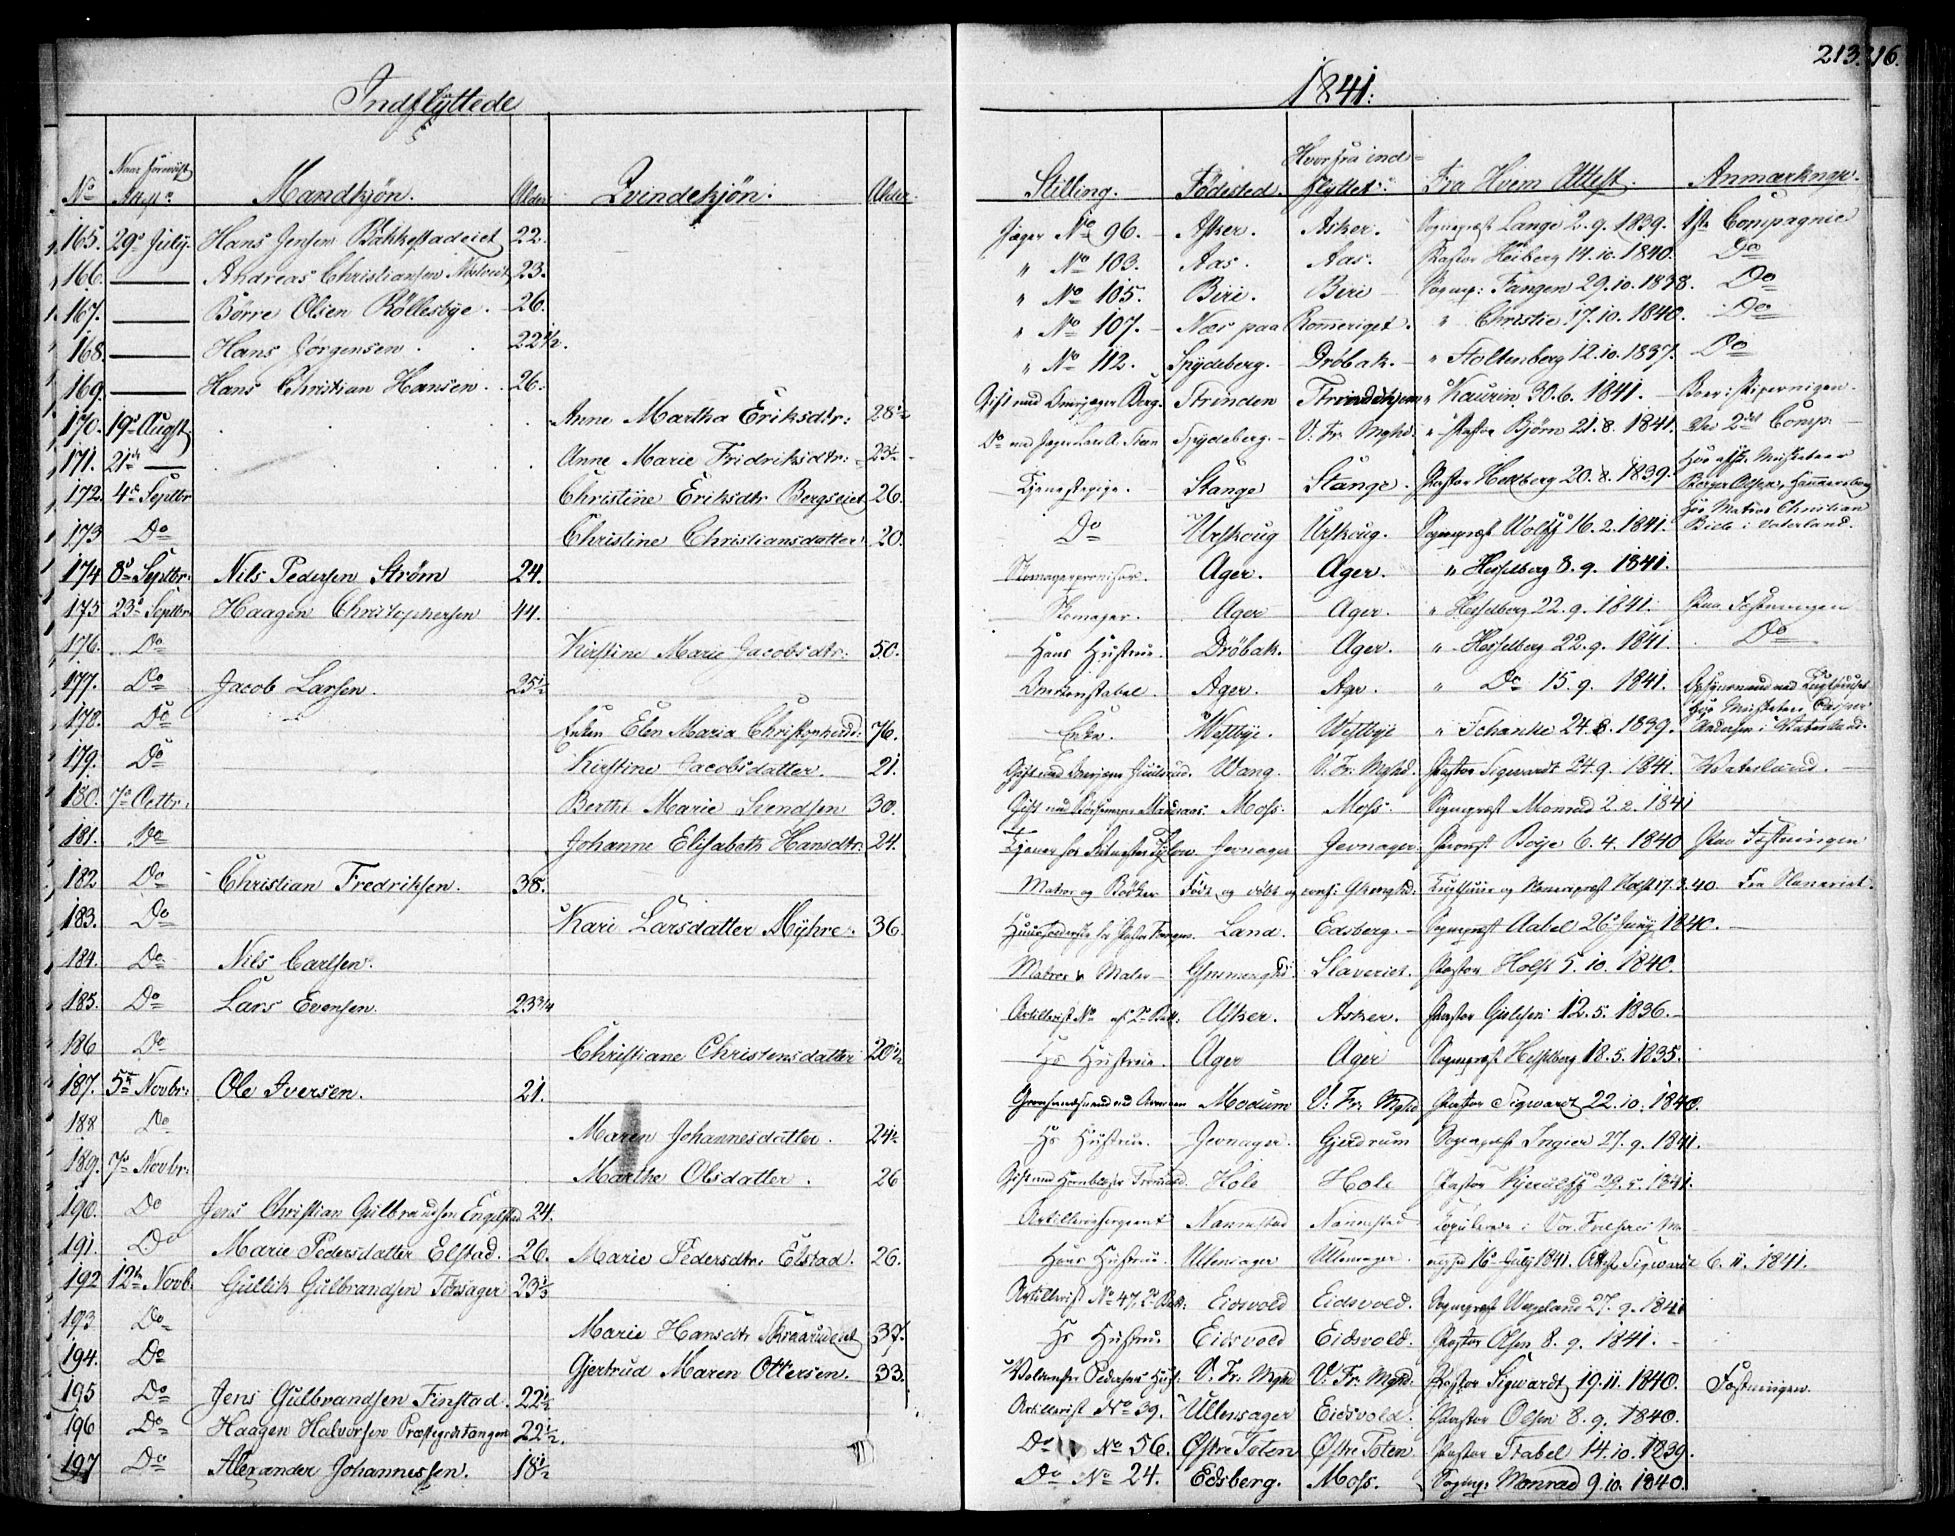 213. 216.
Indflyttede
1841.
No Naar foreviist Attest. Mandkjön. Alder Qvindekjön. Alder. Stilling. Födested. Hvorfra indflyttet. Fra Hvem Attest. Anmærkngr.
165. 29d July. Hans Jensen Bakkestadeiet 22. Jæger No 96. Asker. Asker. Sognepræst Lange 2.9.1839. 1ste Compagnie
166. — Andreas Christiansen 23. " No 103. Aas. Aas. Pastor Heiberg 14.10.1840. Do
167. — Börre Olsen Röllesbye. 26. " No 105. Biri. Biri Sognp: Fangen 29.10.1838. Do
168. — Hans Jörgensen. 22½. " No 107. Næs paa Romeriget. " Christie 17.10.1840. Do
169. — Hans Christian Hansen. 26. " No 112. Spydeberg. Dröbak. " Stoltenberg 12.10.1837. Do
170. 19d Augst. Anne Martha Eriksdtr: 28½ Gift med Berg. Strinden Trondhjem " Kaurin 30.6.1841.
171. 21de — Anne Marie Fridriksdtr: 23½ Do med Jæger Lars A. Spydeberg. V: Fr. Mghd. " Pastor Björn 21.8.1841. Ved 2det Comp.
172. 4d Septbr Christine Eriksdtr Bergseiet 26. Tjenestepige. Stange Stange. Pastor Hedberg 20.8.1839. Börger Olsen, Hammersborg
173 Do Christine Christiansdatter 20. Do Urskoug Urskoug. Sognepræst Wolff 16.2.1841. hos Matros Christian i Vaterland.
174 8d Septbr: Nils Pedersen Ström 24. Ager. Ager. " Hesselberg 8.9.1841.
175 23d Septbr Haagen Christophersen 44. Skomager. Ager Ager. " Hesselberg 22.9.1841. Paa Fæstningen
176. Do Kirstine Marie Jacobsdtr: 50. Hans Hustrue. Dröbak. Ager. " Hesselberg 22.9.1841. Do
177. Do Jacob Larsen. 25½ Ager. Agr. " Do 15.9.1841.
178. Do Enken Elen Maria 76. Enke. Westbye. Westbye " Schanke 24.8.1839. Andersen i Vaterland.
179. Do Kirstine Jacobsdatter. 21. Wang. V: Fr: Mghd. Pastor Sigwardt 24.9.1841. Waterland.
180. 7d Octbr: Berthe Marie Svendsen 30. Moss. Moss. Sognepræst Monrad 2.2.1841
181. Do Johanne Elisabeth Hansdtr. 24. Jevnager Jevnager. Provst Boje 6.4.1840 Paa Fæstningen
182 Do Christian Fredriksen. 38. Matros og Födt og döbt og 17.3.40. Fra Slaveriet.
183. Do Kari Larsdatter Myhre. 36. Land. Edsberg. Sognepræst Aabel 26d Juny 1840.
184. Do Nils Carlsen. Matros & Maler Slaveriet. Pastor Holst 5.10.1840.
185. Do Lars Evensen. 23¾ Artillerist No af 2d Batt: Asker. Asker. Pastor 12.5.1836.
186 Do Christiane Christensdatter 20½ Hs Hustrue. Ager Ager Sognepræst Hesselberg 18.5.1835.
187. 5te Novbr: Ole Iversen. 21. Modum V: Fr: Mghd Pastor Sigwardt 22.10.1840.
188 Do Maren Johannesdatter. 24½ Hs Hustrue. Jevnager. Gjerdrum Sognepræst Ingier 27.9.1841.
189. 7de Novbr: Marthe Olsdatter. 26 Gift med Hornblæser Hole Hole Pastor Kjerulff 29.5.1841.
190. Do Jens Christian Gulbrandsen Engelstad 24. Artilleriesergeant Nannestad Nannestad Copulerede i Vor Frelsers Me-
191. Do Marie Pedersdatter Elstad. 26. Marie Pedersdtr: Elstad. 26. Hans Hustrue. Ullensager Ullensager. nighd 16d July 1841. Attest Sigwardt 6.11.1841.
192 12te Novb. Gullik Gulbrandsen Tönsager 23⅓ Artillerist No 47, 2d Bat: Eidsvold Eidsvold. Sognepræst Wergeland 27.9.1841
193 Do Marie Hansdtr Skraarudeiet 37. Hs Hustrue Eidsvold Eidsvold. Pastor Olsen 8.9.1841.
194. Do Gjertrud Maren Ottersen. 33. Pedersens Hust. V: Fr. Mghd V: Fr: Mghd. Pastor Sigwardt 19.11.1840. Fæstningen.
195 Do Jens Gulbrandsen Finstad. 22½ Artillerist No 39. Ullensager Eidsvold. Pastor Olsen 8.9.1840.
196 Do Haagen Halvorsen Præstgrdstangen 22½. Do No 56. Östre Toten Östre Toten Pastor Stabel 14.10.1839.
197 Do Alexander Johannessen. 18½ Do No 24. Edsberg. Moss. Sognp: Monrad 9.10.1840.